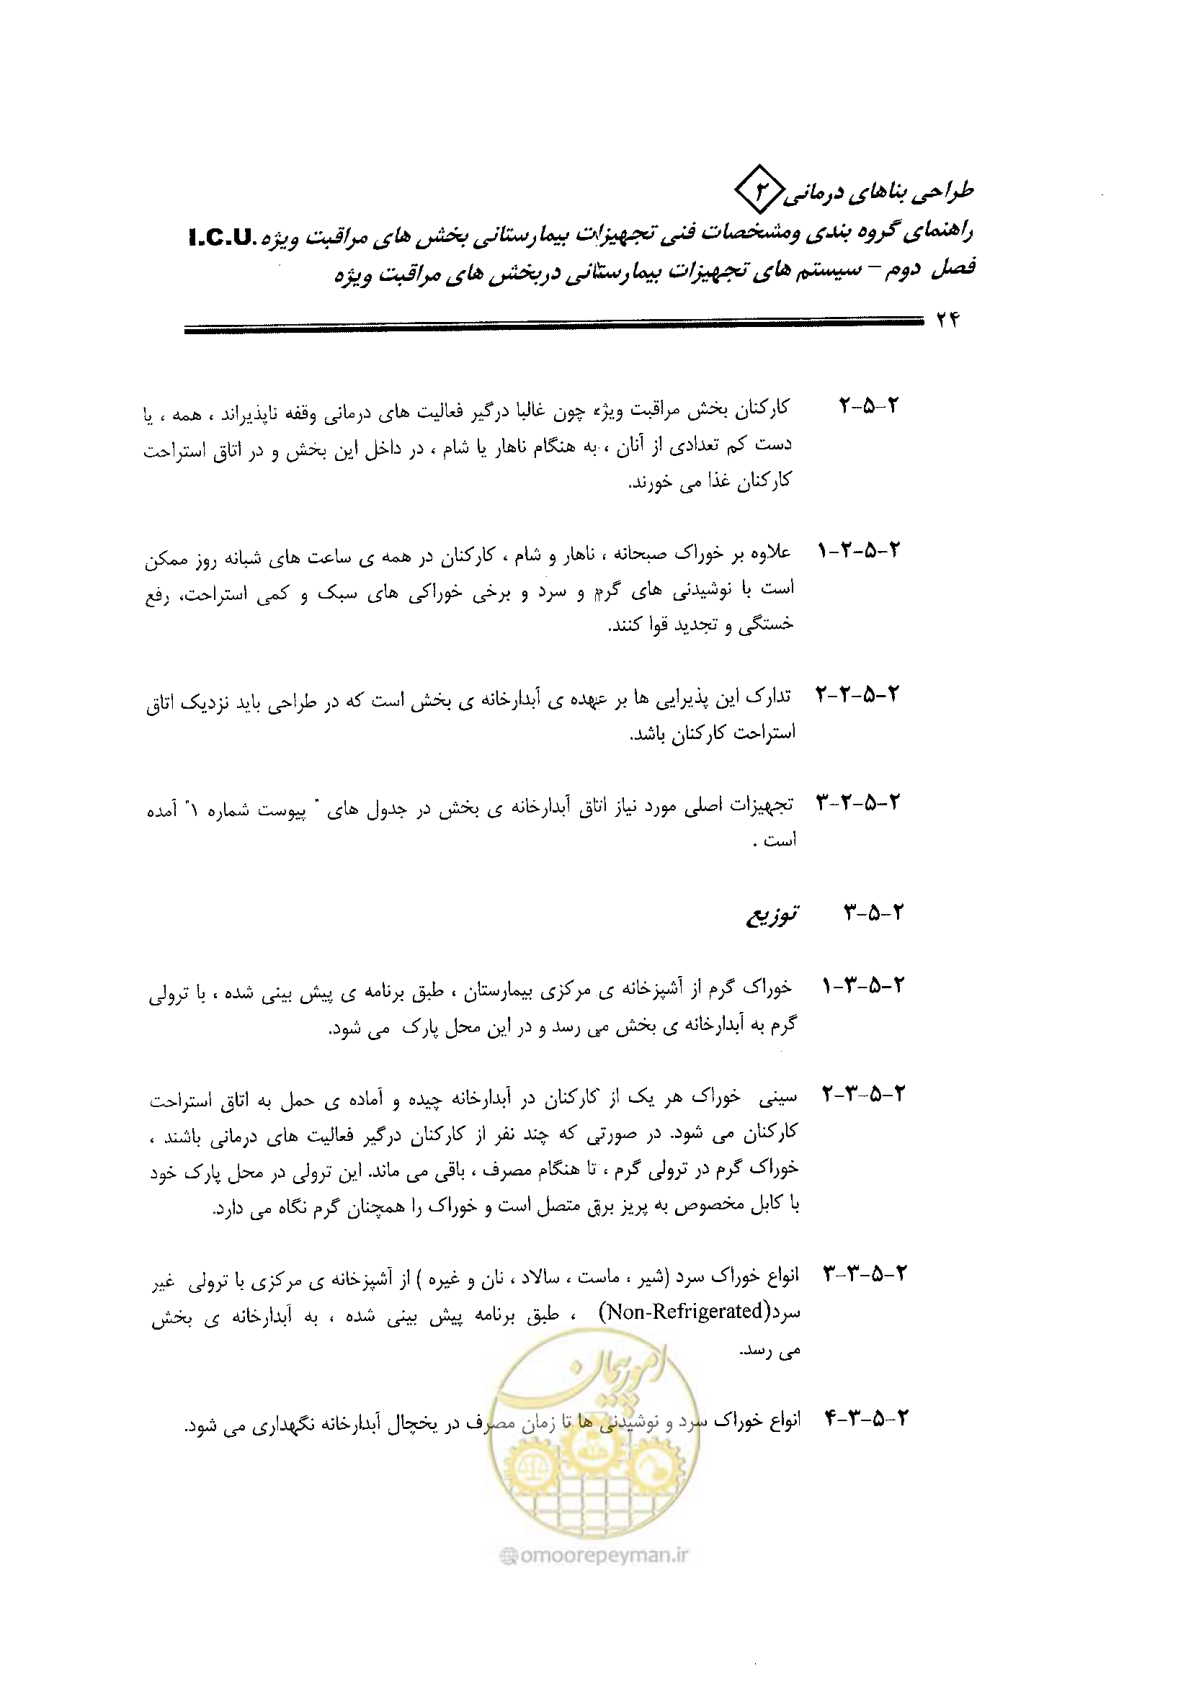 طراحی بناهای درمانی ۲
راهنمای گروه بندی ومشخصات فنی تجهیزات بیمارستانی بخش های مراقبت ویژه .I.C.U
فصل دوم – سیستم های تجهیزات بیمارستانی دربخش های مراقبت ویژه
۲۴
۲-۵-۲ کارکنان بخش مراقبت ویژه چون غالبا درگیر فعالیت های درمانی وقفه ناپذیراند ، همه ، یا
دست کم تعدادی از آنان ، به هنگام ناهار یا شام ، در داخل این بخش و در اتاق استراحت
کارکنان غذا می خورند.
۲-۵-۲-۱ علاوه بر خوراک صبحانه ، ناهار و شام ، کارکنان در همه ی ساعت های شبانه روز ممکن
است با نوشیدنی های گرم و سرد و برخی خوراکی های سبک و کمی استراحت، رفع
خستگی و تجدید قوا کنند.
۲-۵-۲-۲ تدارک این پذیرایی ها بر عهده ی آبدارخانه ی بخش است که در طراحی باید نزدیک اتاق
استراحت کارکنان باشد.
۲-۵-۲-۳ تجهیزات اصلی مورد نیاز اتاق آبدارخانه ی بخش در جدول های " پیوست شماره ۱" آمده
است .
۲-۵-۳ توزیع
۲-۵-۳-۱ خوراک گرم از آشپزخانه ی مرکزی بیمارستان ، طبق برنامه ی پیش بینی شده ، با ترولی
گرم به آبدارخانه ی بخش می رسد و در این محل پارک می شود.
۲-۵-۳-۲ سینی خوراک هر یک از کارکنان در آبدارخانه چیده و آماده ی حمل به اتاق استراحت
کارکنان می شود. در صورتی که چند نفر از کارکنان درگیر فعالیت های درمانی باشند ،
خوراک گرم در ترولی گرم ، تا هنگام مصرف ، باقی می ماند. این ترولی در محل پارک خود
با کابل مخصوص به پریز برق متصل است و خوراک را همچنان گرم نگاه می دارد.
۲-۵-۳-۳ انواع خوراک سرد (شیر ، ماست ، سالاد ، نان و غیره ) از آشپزخانه ی مرکزی با ترولی غیر
سرد(Non-Refrigerated) ، طبق برنامه پیش بینی شده ، به آبدارخانه ی بخش
می رسد.
۲-۵-۳-۴ انواع خوراک سرد و نوشیدنی ها تا زمان مصرف در یخچال آبدارخانه نگهداری می شود.
امور پیمان
@omoorepeyman.ir